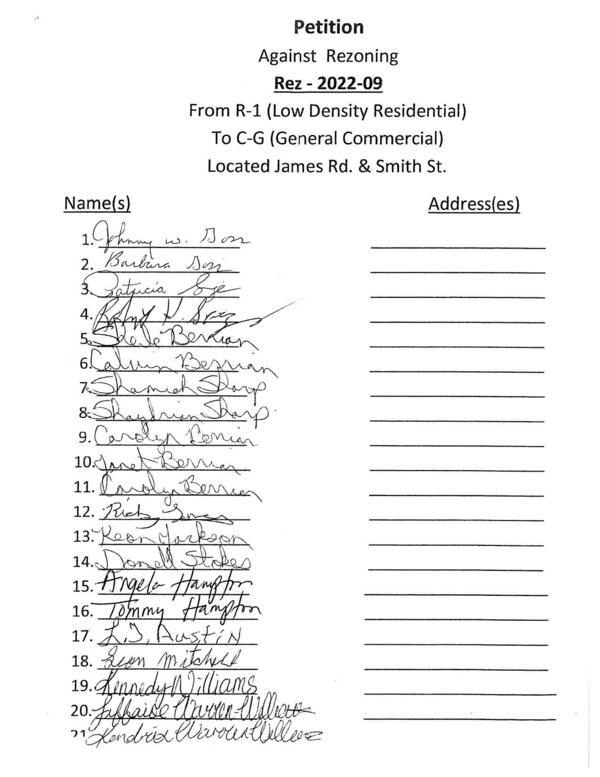 Petition
Against Rezoning
Rez - 2022-09
From R-1 (Low Density Residential)
To C-G (General Commercial)
Located James Rd. & Smith St.
Name(s) Address(es)
1. Johnny W.
2. Barbara
3. Patricia
4.
5. Berrian
6. Calvin Berrian
7. Sharp
8. Sharp
9. Carolyn Berrian
10. Janet Berrian
11. Carolyn Berrian
12.
13. Keon Jackson
14. Donell Stokes
15. Angela Hampton
16. Tommy Hampton
17. L.J. Austin
18. Mitchell
19. Kennedy Williams
20. Warren-Williams
21 Kendrix Warren-Williams